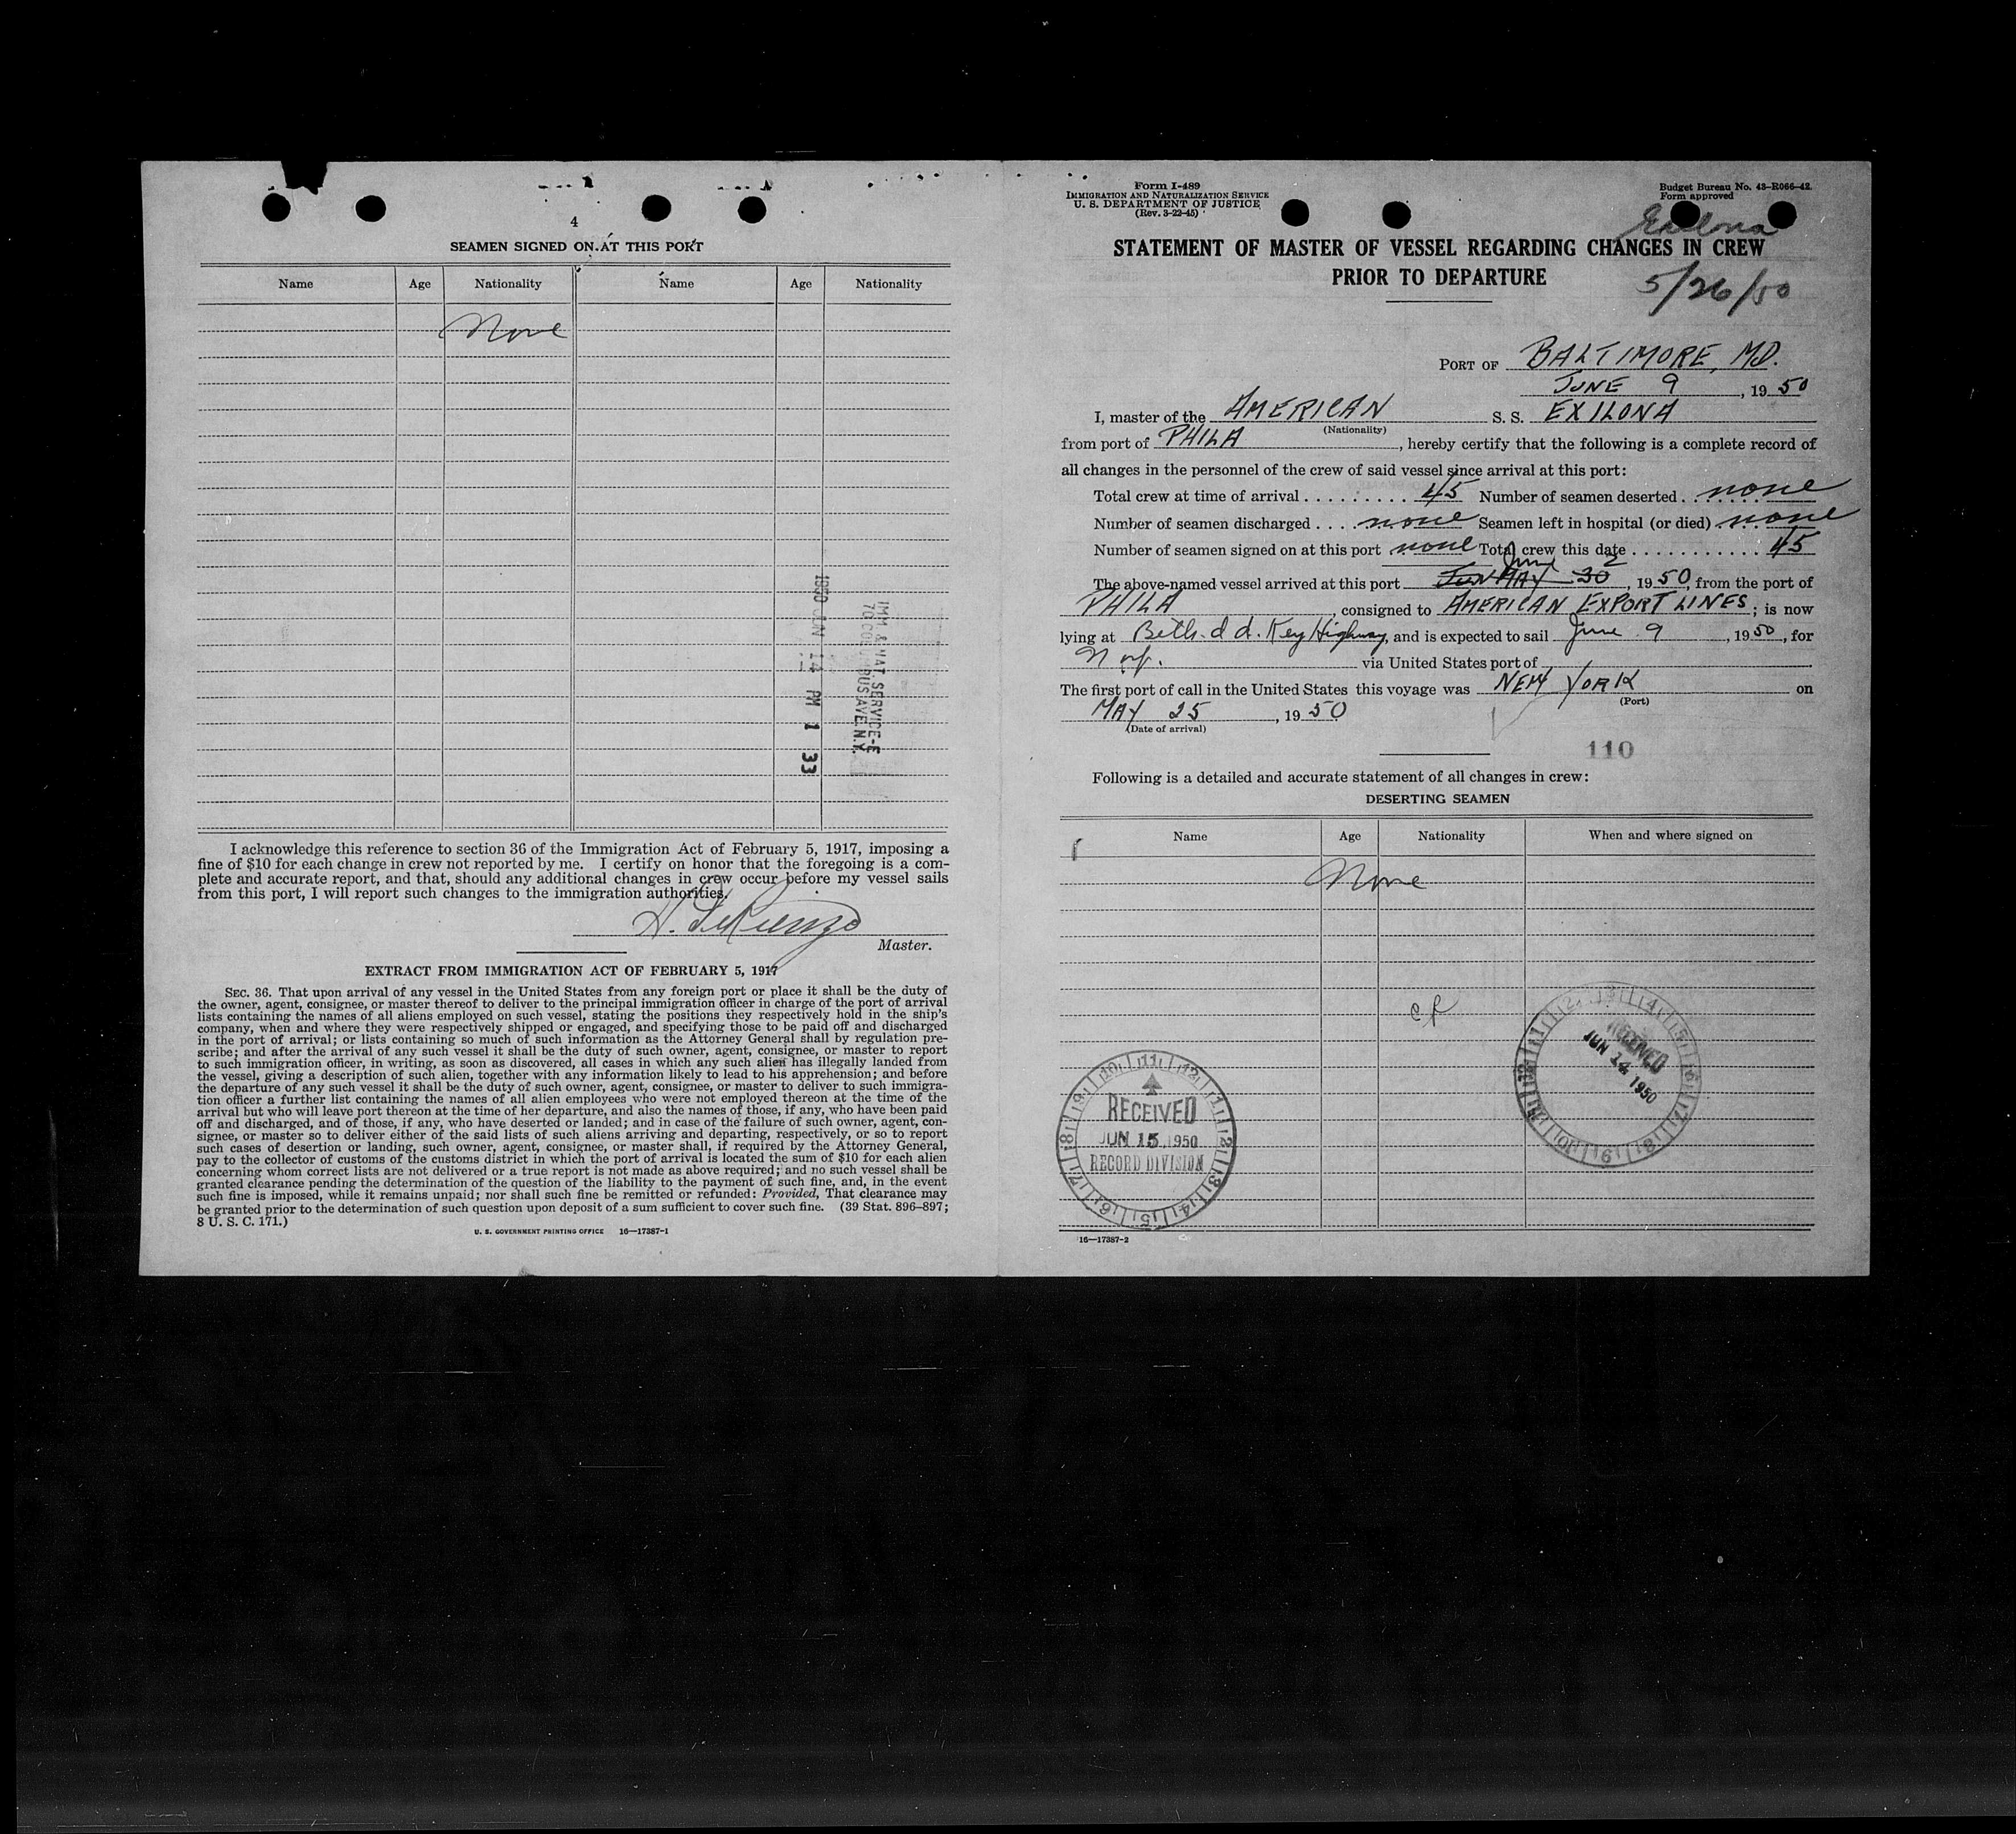 4
SEAMEN SIGNED ON AT THIS PORT
Name Age Nationality Name Age Nationality
None
1950 JUN 14 PM 1 33
IMM. & NAT. SERVICE-E
70 COLUMBUS AVE. N.Y.
I acknowledge this reference to section 36 of the Immigration Act of February 5, 1917, imposing a
fine of $10 for each change in crew not reported by me. I certify on honor that the foregoing is a com-
plete and accurate report, and that, should any additional changes in crew occur before my vessel sails
from this port, I will report such changes to the immigration authorities.
Master.
EXTRACT FROM IMMIGRATION ACT OF FEBRUARY 5, 1917
SEC. 36. That upon arrival of any vessel in the United States from any foreign port or place it shall be the duty of
the owner, agent, consignee, or master thereof to deliver to the principal immigration officer in charge of the port of arrival
lists containing the names of all aliens employed on such vessel, stating the positions they respectively hold in the ship's
company, when and where they were respectively shipped or engaged, and specifying those to be paid off and discharged
in the port of arrival; or lists containing so much of such information as the Attorney General shall by regulation pre-
scribe; and after the arrival of any such vessel it shall be the duty of such owner, agent, consignee, or master to report
to such immigration officer, in writing, as soon as discovered, all cases in which any such alien has illegally landed from
the vessel, giving a description of such alien, together with any information likely to lead to his apprehension; and before
the departure of any such vessel it shall be the duty of such owner, agent, consignee, or master to deliver to such immigra-
tion officer a further list containing the names of all alien employees who were not employed thereon at the time of the
arrival but who will leave port thereon at the time of her departure, and also the names of those, if any, who have been paid
off and discharged, and of those, if any, who have deserted or landed; and in case of the failure of such owner, agent, con-
signee, or master so to deliver either of the said lists of such aliens arriving and departing, respectively, or so to report
such cases of desertion or landing, such owner, agent, consignee, or master shall, if required by the Attorney General,
pay to the collector of customs of the customs district in which the port of arrival is located the sum of $10 for each alien
concerning whom correct lists are not delivered or a true report is not made as above required; and no such vessel shall be
granted clearance pending the determination of the question of the liability to the payment of such fine, and, in the event
such fine is imposed, while it remains unpaid; nor shall such fine be remitted or refunded: Provided, That clearance may
be granted prior to the determination of such question upon deposit of a sum sufficient to cover such fine. (39 Stat. 896-897;
8 U. S. C. 171.)
U. S. GOVERNMENT PRINTING OFFICE 16—17387-1
Form I-489
IMMIGRATION AND NATURALIZATION SERVICE
U. S. DEPARTMENT OF JUSTICE
(Rev. 3-22-45)
Budget Bureau No. 43-R066-42.
Form approved
Exilona
STATEMENT OF MASTER OF VESSEL REGARDING CHANGES IN CREW
PRIOR TO DEPARTURE
5/26/50
PORT OF BALTIMORE, MD.
JUNE 9, 1950
I, master of the AMERICAN S. S. EXILONA
(Nationality)
from port of PHILA, hereby certify that the following is a complete record of
all changes in the personnel of the crew of said vessel since arrival at this port:
Total crew at time of arrival ......... 45 Number of seamen deserted .. none
Number of seamen discharged .... none Seamen left in hospital (or died) none
Number of seamen signed on at this port none Total crew this date ........... 45
June 2
The above-named vessel arrived at this port MAY 30, 1950, from the port of
PHILA, consigned to AMERICAN EXPORT LINES; is now
lying at Beth. d d. Key Highway, and is expected to sail June 9, 1950, for
Norf. via United States port of
The first port of call in the United States this voyage was NEW YORK on
(Port)
MAY 25, 1950
(Date of arrival)
110
Following is a detailed and accurate statement of all changes in crew:
DESERTING SEAMEN
Name Age Nationality When and where signed on
None
RECEIVED
JUN 14 1950
RECEIVED
JUN 15 1950
RECORD DIVISION
16—17387-2